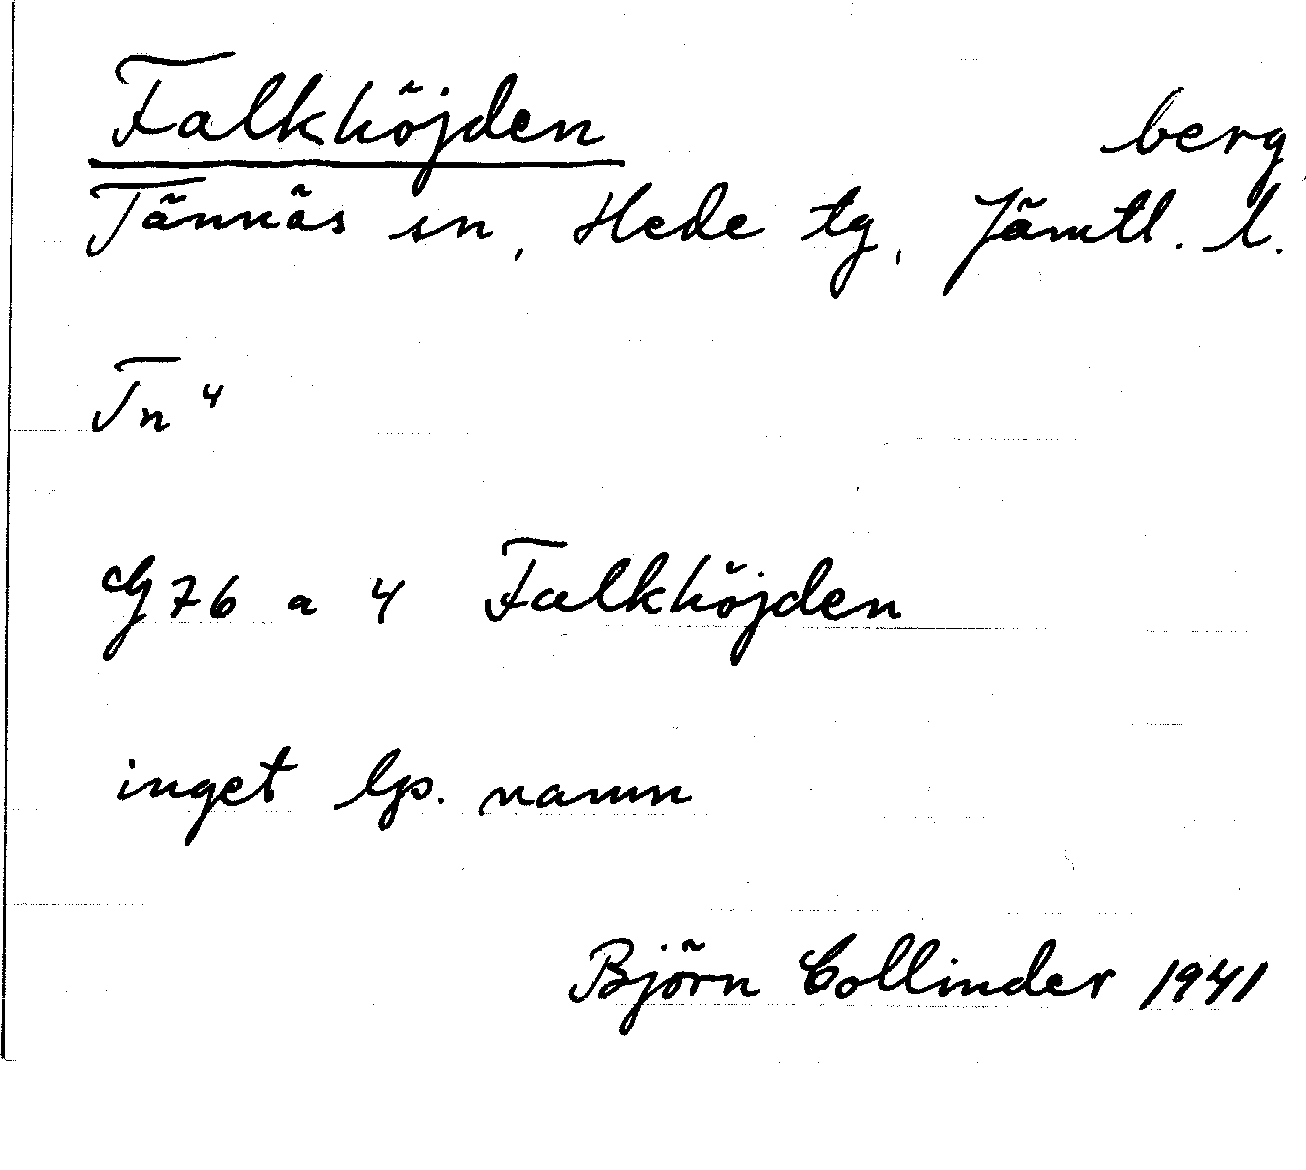 Falkhöjden berg
Tännäs sn, Hede tg, Jämtl. l.
Tn 4
G 76 a 4 Falkhöjden
inget lp. namn
Björn Collinder 1941